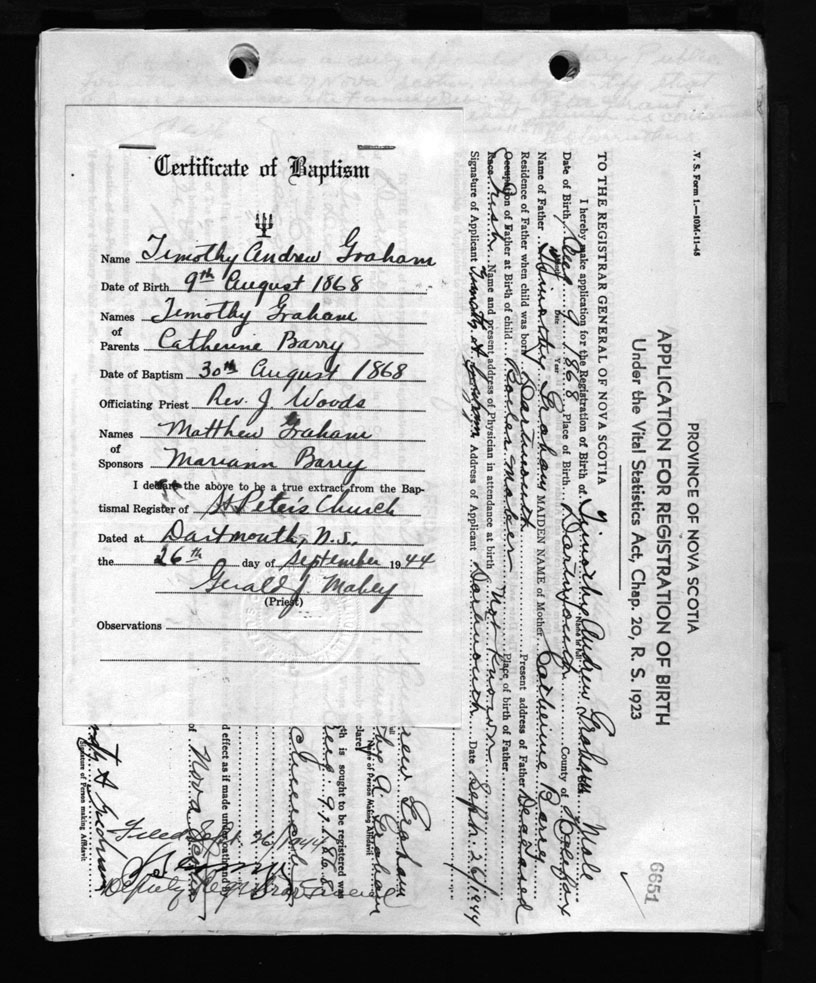 Certificate of Baptism
Name Timothy Andrew Graham
Date of Birth 9th August 1868
Names of Parents Timothy Graham
Catherine Barry
Date of Baptism 30th August 1868
Officiating Priest Rev. J. Woods
Names of Sponsors Matthew Graham
Mariann Barry
I declare the above to be a true extract from the Bap-
tismal Register of St Peter's Church
Dated at Dartmouth, N.S.
the 26th day of September 1944
Gerald J. Mabey
(Priest)
Observations
V. S. Form 1.—10M:11-43
6651
PROVINCE OF NOVA SCOTIA
APPLICATION FOR REGISTRATION OF BIRTH
Under the Vital Statistics Act, Chap. 20, R. S. 1923
TO THE REGISTRAR GENERAL OF NOVA SCOTIA
I hereby make application for the Registration of Birth of Timothy Andrew Graham Male
Name in full
Date of Birth Aug 9 1868 Place of Birth Dartmouth County of Halifax
Month Date Year
Name of Father Timothy Graham MAIDEN NAME of Mother Catherine Barry
Residence of Father when child was born Dartmouth Present address of Father Deceased
Occupation of Father at Birth of child Place of birth of Father
Race Irish Name and present address of Physician in attendance at birth Not Known
Signature of Applicant Timothy A. Graham Address of Applicant Dartmouth Date Sept. 26/1944
Andrew Graham
Graham
Name of Person Making Affidavit
th is sought to be registered was
9, 1868
d effect as if made under oath and
of Nova Scotia
Filed Sept. 26/1944
Deputy Registrar General
Signature of Person making Affidavit